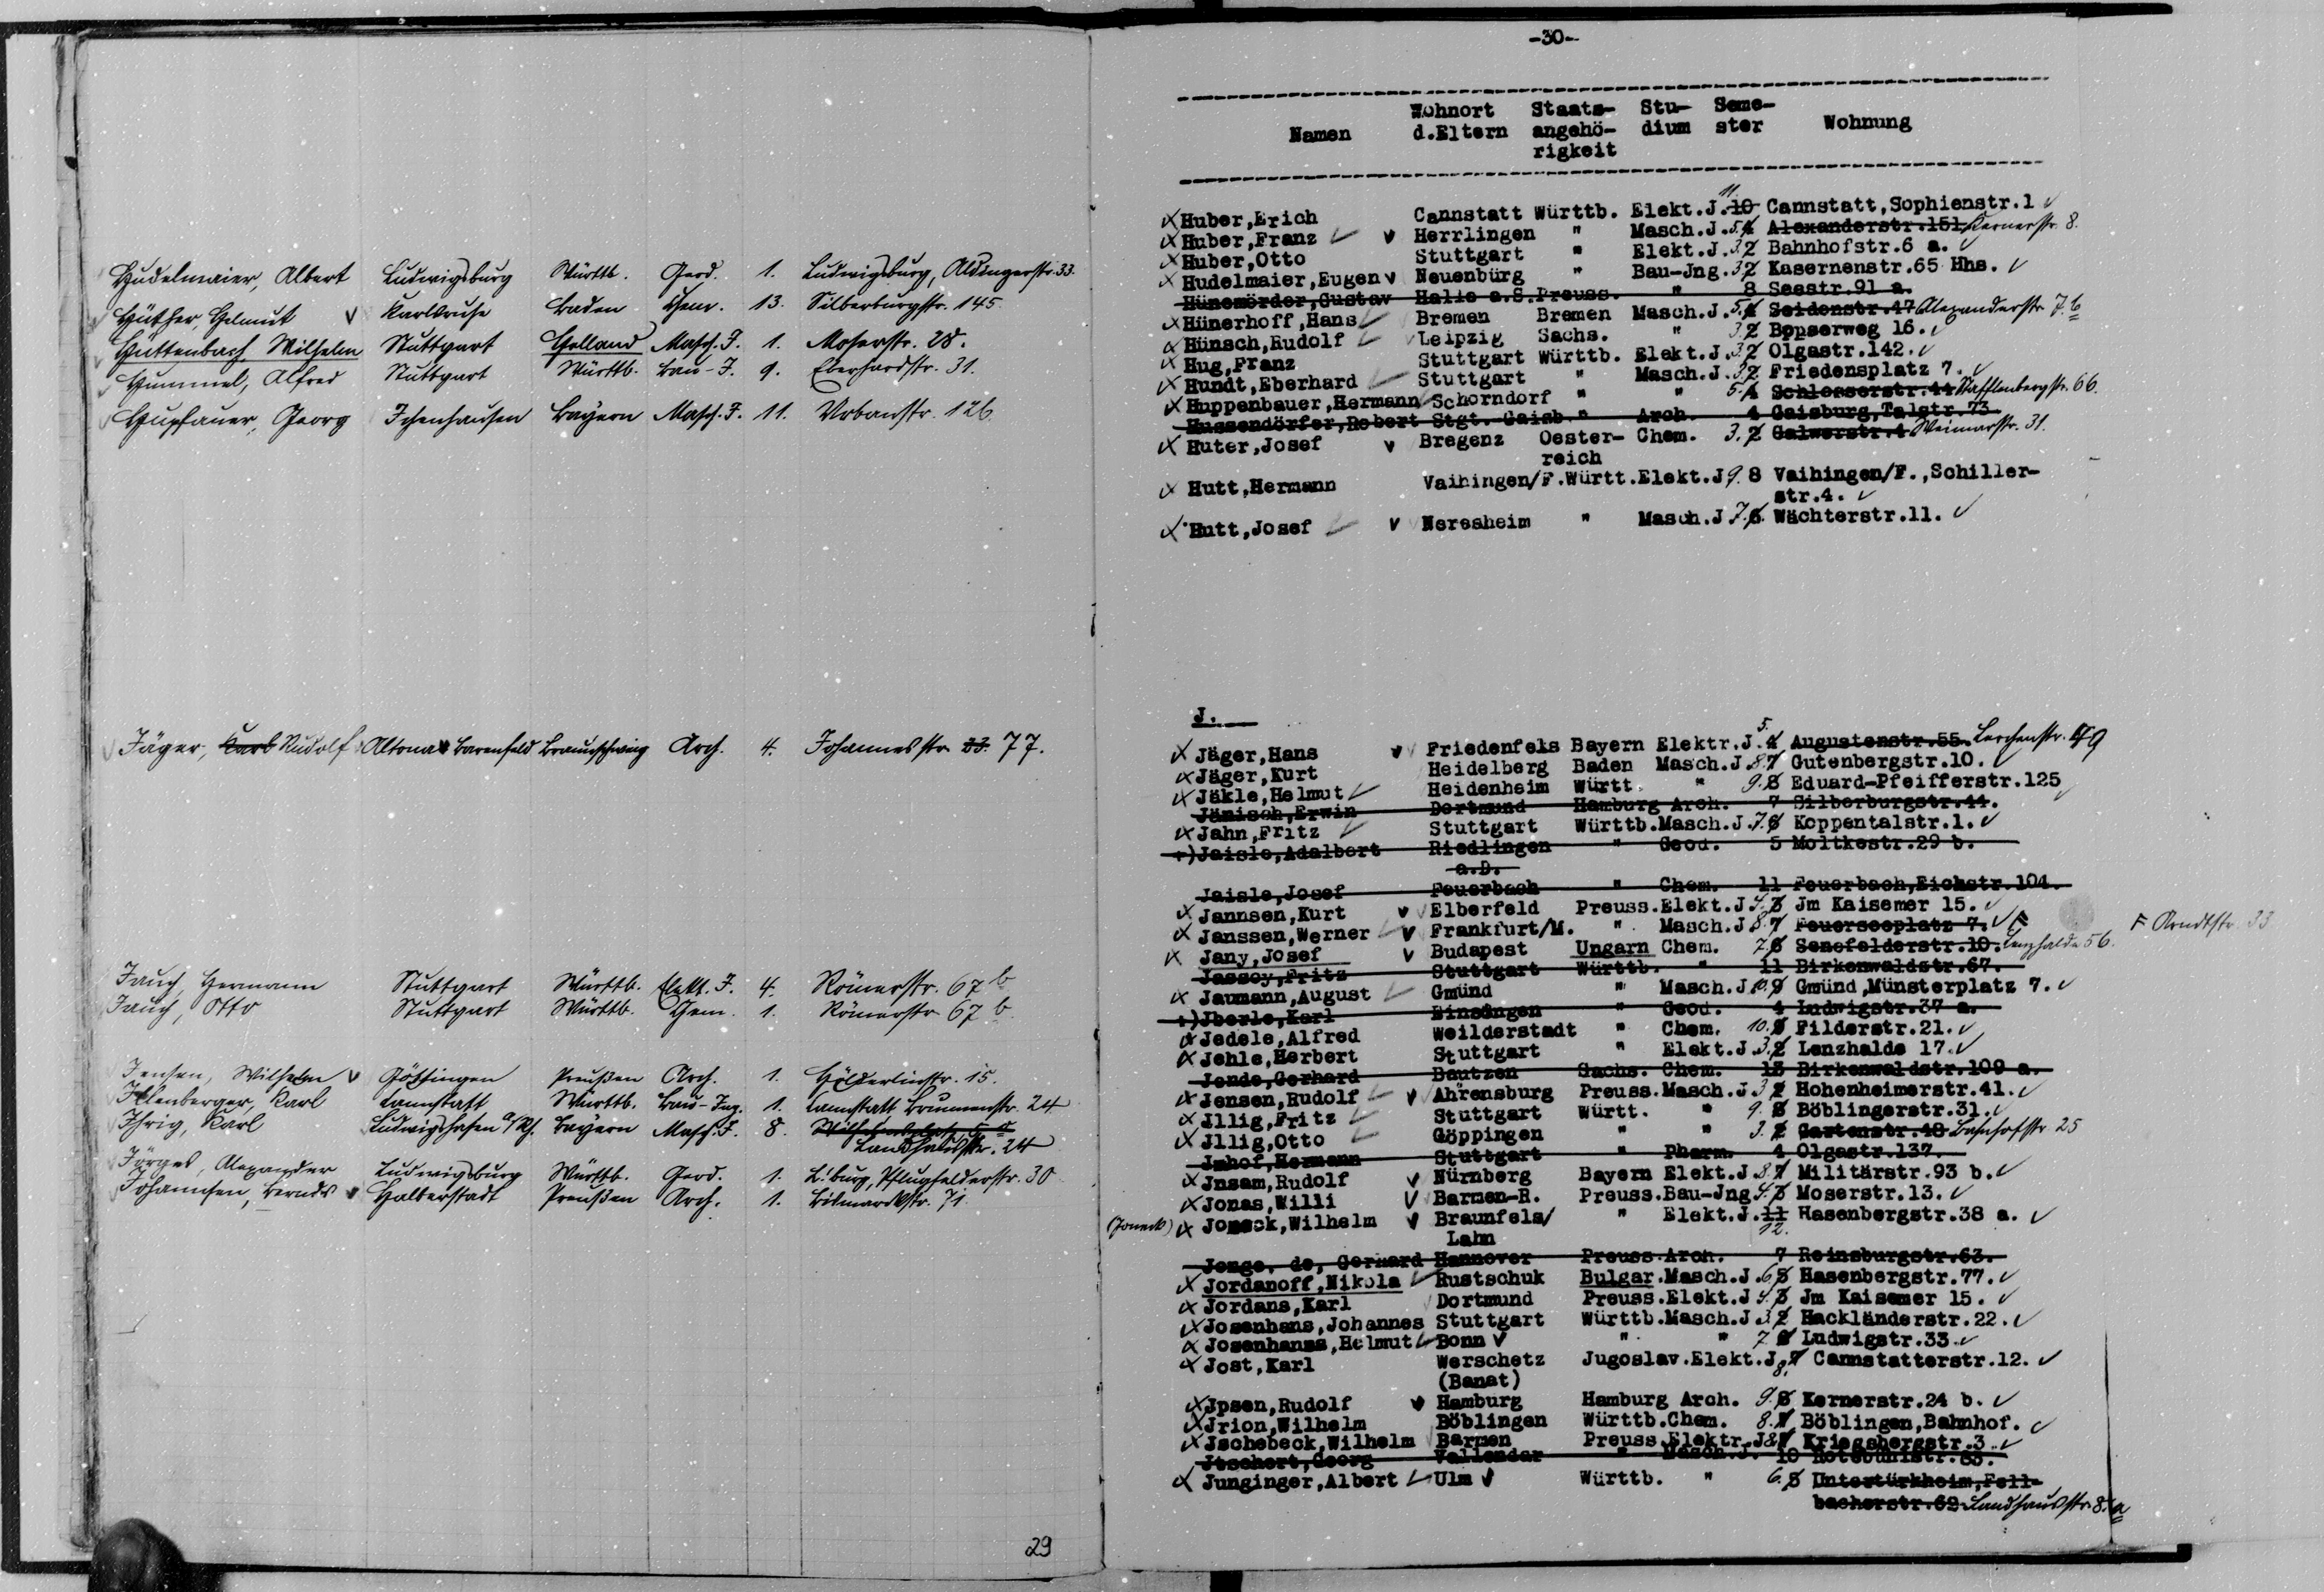 Hudelmaier, Albert Ludwigsburg Württb. Geod. 1. Ludwigsburg, Aldingerstr. 33.
Hüther, Helmut v Karlsruhe Baden Chem. 13. Silberburgstr. 145
Hüttenbach Wilhelm Stuttgart Holland Masch. J. 1. Moserstr. 28.
Hummel, Alfred Stuttgart Württb. Bau-J. 9. Eberhardstr. 31.
Hupfauer, Georg Ichenhausen Bayern Masch. J. 11. Urbanstr. 126.
Jäger, Karl Rudolf Altona Barenfeld Braunschweig Arch. 4. Johannesstr. 33. 77.
Jauch, Hermann Stuttgart Württb. Elekt. J. 4. Römerstr. 67 b
Jauch, Otto Stuttgart Württb. Chem. 1. Römerstr. 67 b.
Jensen, Wilhelm v Göttingen Preußen Arch. 1. Hölderlinstr. 15.
Illenberger, Karl Cannstatt Württb. Bau-Ing. 1. Cannstatt Brunnenstr. 24
Ihrig, Karl Ludwigshafen a/Rh. Bayern Masch. J. 8.
Landhausstr. 24
Jörges, Alexander Ludwigsburg Württb. Geod. 1. L.'burg, Pflugfelderstr. 30
Johannsen, Berndt v Halberstadt Preußen Arch. 1. Bismarckstr. 71
29
-30-
Namen Wohnort d.Eltern Staats-angehö-rigkeit Stu-dium Seme-ster Wohnung
Huber,Erich Cannstatt Württb. Elekt.J. 11. 10 Cannstatt,Sophienstr.1
Huber,Franz v Herrlingen " Masch.J. 5. 4 Alexanderstr.151 Kernerstr. 8.
Huber,Otto Stuttgart " Elekt.J. 3. 2 Bahnhofstr.6 a.
Hudelmaier,Eugen v Neuenbürg " Bau-Jng. 3. 2 Kasernenstr.65 Hhs.
Hünemörder,Gustav Halle a.S.Preuss. " 8 Seestr.91 a.
Hünerhoff,Hans Bremen Bremen Masch.J. 5. 4 Seidenstr.47 Alexanderstr. 7. b
Hünsch,Rudolf Leipzig Sachs. " 3. 2 Bopserweg 16.
Hug,Franz Stuttgart Württb. Elekt.J. 3. 2 Olgastr.142.
Hundt,Eberhard Stuttgart " Masch.J. 3. 2 Friedensplatz 7.
Huppenbauer,Hermann Schorndorf " " 5. 4 Schlosserstr.44 Stafflenbergstr. 66.
Hussendörfer,Robert Stgt. Gaisb. " Arch. 4 Gaisburg,Talstr.73.
Huter,Josef v Bregenz Oester- Chem. 3. 2 Calwerstr.4 Weimarstr. 31.
reich
Hutt,Hermann Vaihingen/F.Württ.Elekt.J 9. 8 Vaihingen/F.,Schiller-
str.4.
Hutt,Josef v Neresheim " Masch.J 7. 6. Wächterstr.11.
J.
Jäger,Hans v Friedenfels Bayern Elektr.J. 5. 4 Augustenstr.55. Lerchenstr. 59
Jäger,Kurt Heidelberg Baden Masch.J. 8. 7 Gutenbergstr.10.
Jäkle,Helmut Heidenheim Württ. " 9. 8 Eduard-Pfeifferstr.125
Jänisch,Erwin Dortmund Hamburg Arch. 7 Silberburgstr.44.
Jahn,Fritz Stuttgart Württb.Masch.J. 7. 6 Koppentalstr.1.
+)Jaisle,Adalbert Riedlingen " Geod. 5 Moltkestr.29 b.
a.D.
Jaisle,Josef Feuerbach " Chem. 11 Feuerbach,Eichstr.104.
Jannsen,Kurt v Elberfeld Preuss.Elekt.J 4. 3 Jm Kaisemer 15.
Janssen,Werner v Frankfurt/M. " Masch.J 8. 7 Feuerseeplatz 7. F F Arndtstr. 33
Jany,Josef v Budapest Ungarn Chem. 7. 6 Senefelderstr.10. Lenzhalde 56.
Jassoy,Fritz Stuttgart Württb. " 11 Birkenwaldstr.67.
Jaumann,August Gmünd " Masch.J 10. 9 Gmünd,Münsterplatz 7.
+)Jberle,Karl Einsingen " Geod. 4 Ludwigstr.37 a.
Jedele,Alfred Weilderstadt " Chem. 10. Filderstr.21.
Jehle,Herbert Stuttgart " Elekt.J. 3. 2 Lenzhalde 17.
Jende,Gerhard Bautzen Sachs. Chem. 13 Birkenwaldstr.109 a.
Jensen,Rudolf v Ahrensburg Preuss.Masch.J 3 2 Hohenheimerstr.41.
Jllig,Fritz Stuttgart Württ. " 9. 8 Böblingerstr.31.
Jllig,Otto Göppingen " " 3. 2 Gartenstr.48 Bahnhofstr. 25
Jmhof,Hermann Stuttgart " Pharm. 4 Olgastr.137.
Jnsam,Rudolf v Nürnberg Bayern Elekt.J 8. 7 Militärstr.93 b.
Jonas,Willi v Barmen-R. Preuss.Bau-Jng 4. 3 Moserstr.13.
(Joneck) Joneck,Wilhelm v Braunfels/ " Elekt.J. 11 Hasenbergstr.38 a.
Lahn 12.
Jonge, de, Gerhard Hannover Preuss.Arch. 7 Reinsburgstr.63.
Jordanoff,Nikola Rustschuk Bulgar.Masch.J. 6 5 Hasenbergstr.77.
Jordans,Karl Dortmund Preuss.Elekt.J 4. 3 Jm Kaisemer 15.
Josenhans,Johannes Stuttgart Württb.Masch.J 3. 2 Hackländerstr.22.
Josenhanss,Helmut Bonn v " " 7 6 Ludwigstr.33.
Jost,Karl Werschetz Jugoslav.Elekt.J 8. 7 Cannstatterstr.12.
(Banat)
Jpsen,Rudolf v Hamburg Hamburg Arch. 9. 8 Kernerstr.24 b.
Jrion,Wilhelm Böblingen Württb.Chem. 8. 7 Böblingen,Bahnhof.
Jschebeck,Wilhelm Barmen Preuss.Elektr.J 8. 7 Kriegsbergstr.3.
Jtschert,Georg Vallendar " Masch.J. 10 Rotebühlstr.83.
Junginger,Albert Ulm v Württb. " 6. 5 Untertürkheim,Fell-
bacherstr.62 Landhausstr. 8. a